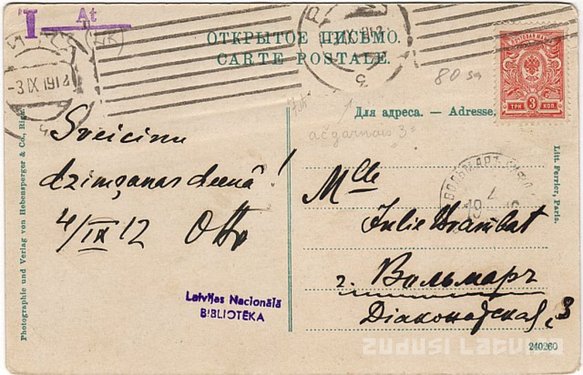 At
ОТКРЫТОЕ ПИСЬМО.
CARTE POSTALE.
-3 IX 1912
80 sa
ПОЧТОВАЯ МАРКА
ТРИ 3 КОП
Для адреса. — Adresse.
ačgārnais 3
Sveicinu
dzimšanas deenā!
4/IX 12 Otto
Mlle
Julie
г. Вольмаръ
Діаконатская, 3
ВОЛЬМАРЪ
Latvijas Nacionālā
BIBLIOTĒKA
Photographie und Verlag von Hebensperger & Co., Riga
Litt. Ferrier, Paris.
240260
zudusi Latvija